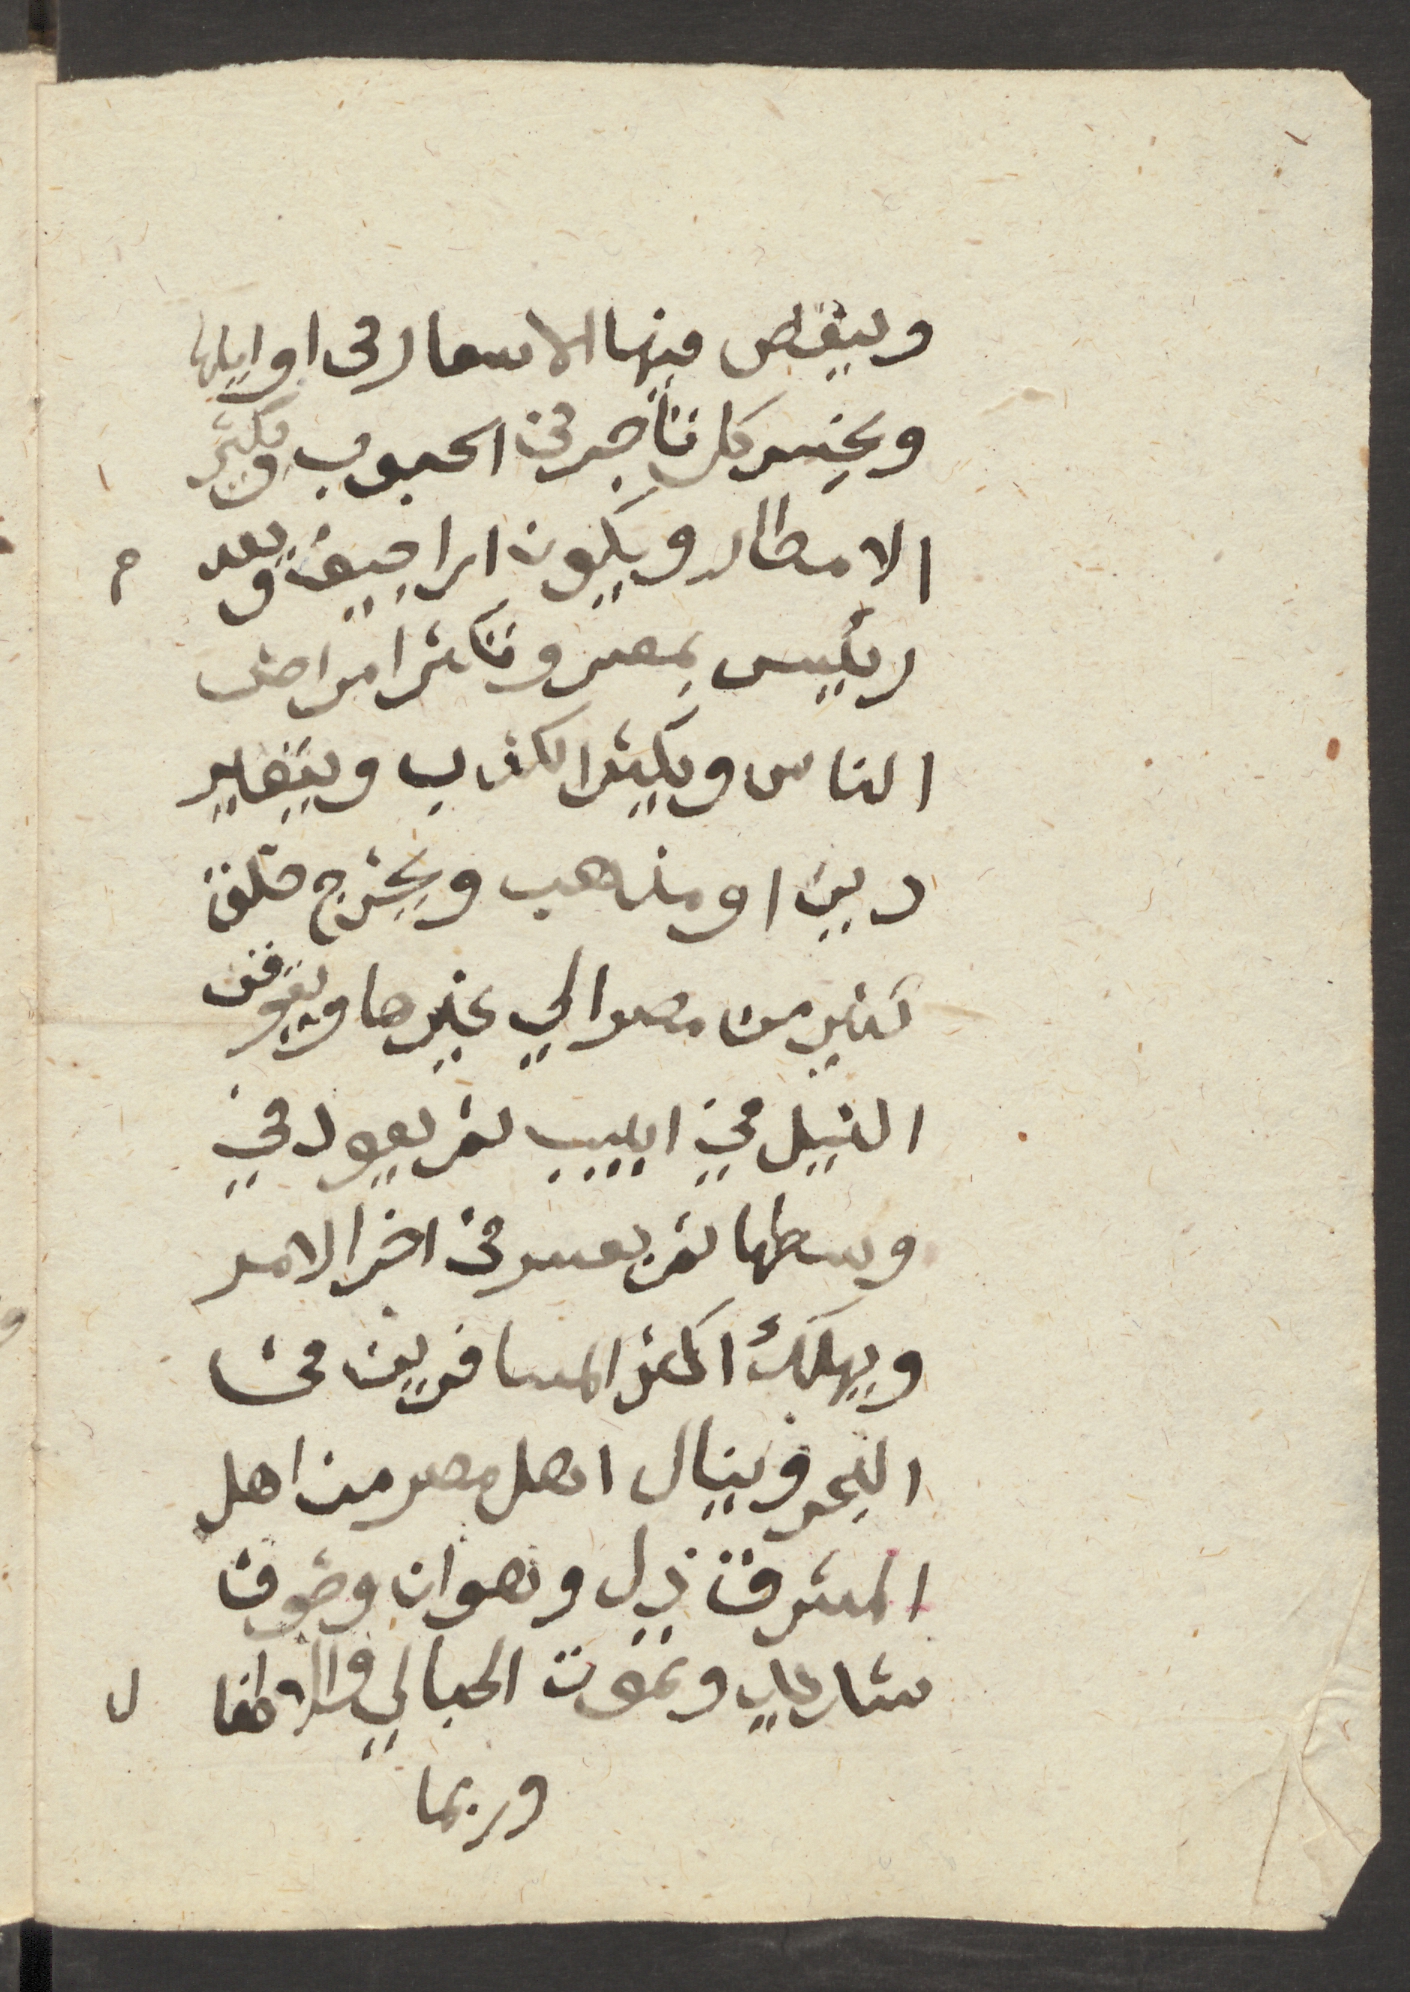 وينقص فيها الاسعار فى اوايلها
ويخسر كل تاجر فى الحبوب وتكثر
الامطار ويكون اراجيف وبعد م
رئيس بمصر وتكثر امراض
الناس ويكثر الكذب ويتغاير
دين او مذهب ويخرج خلق
كثير من مصر الي غيرها ويتوقف
النيل في ابيب ثم يعود في
وسطها ثم يعسر فى اخر الامر
ويهلك اكثر المسافرين فى
البحر وينال اهل مصر من اهل
المشرق ذل وهوان وخوف
شديد وتموت الحبالي والاطفا ل
وربما